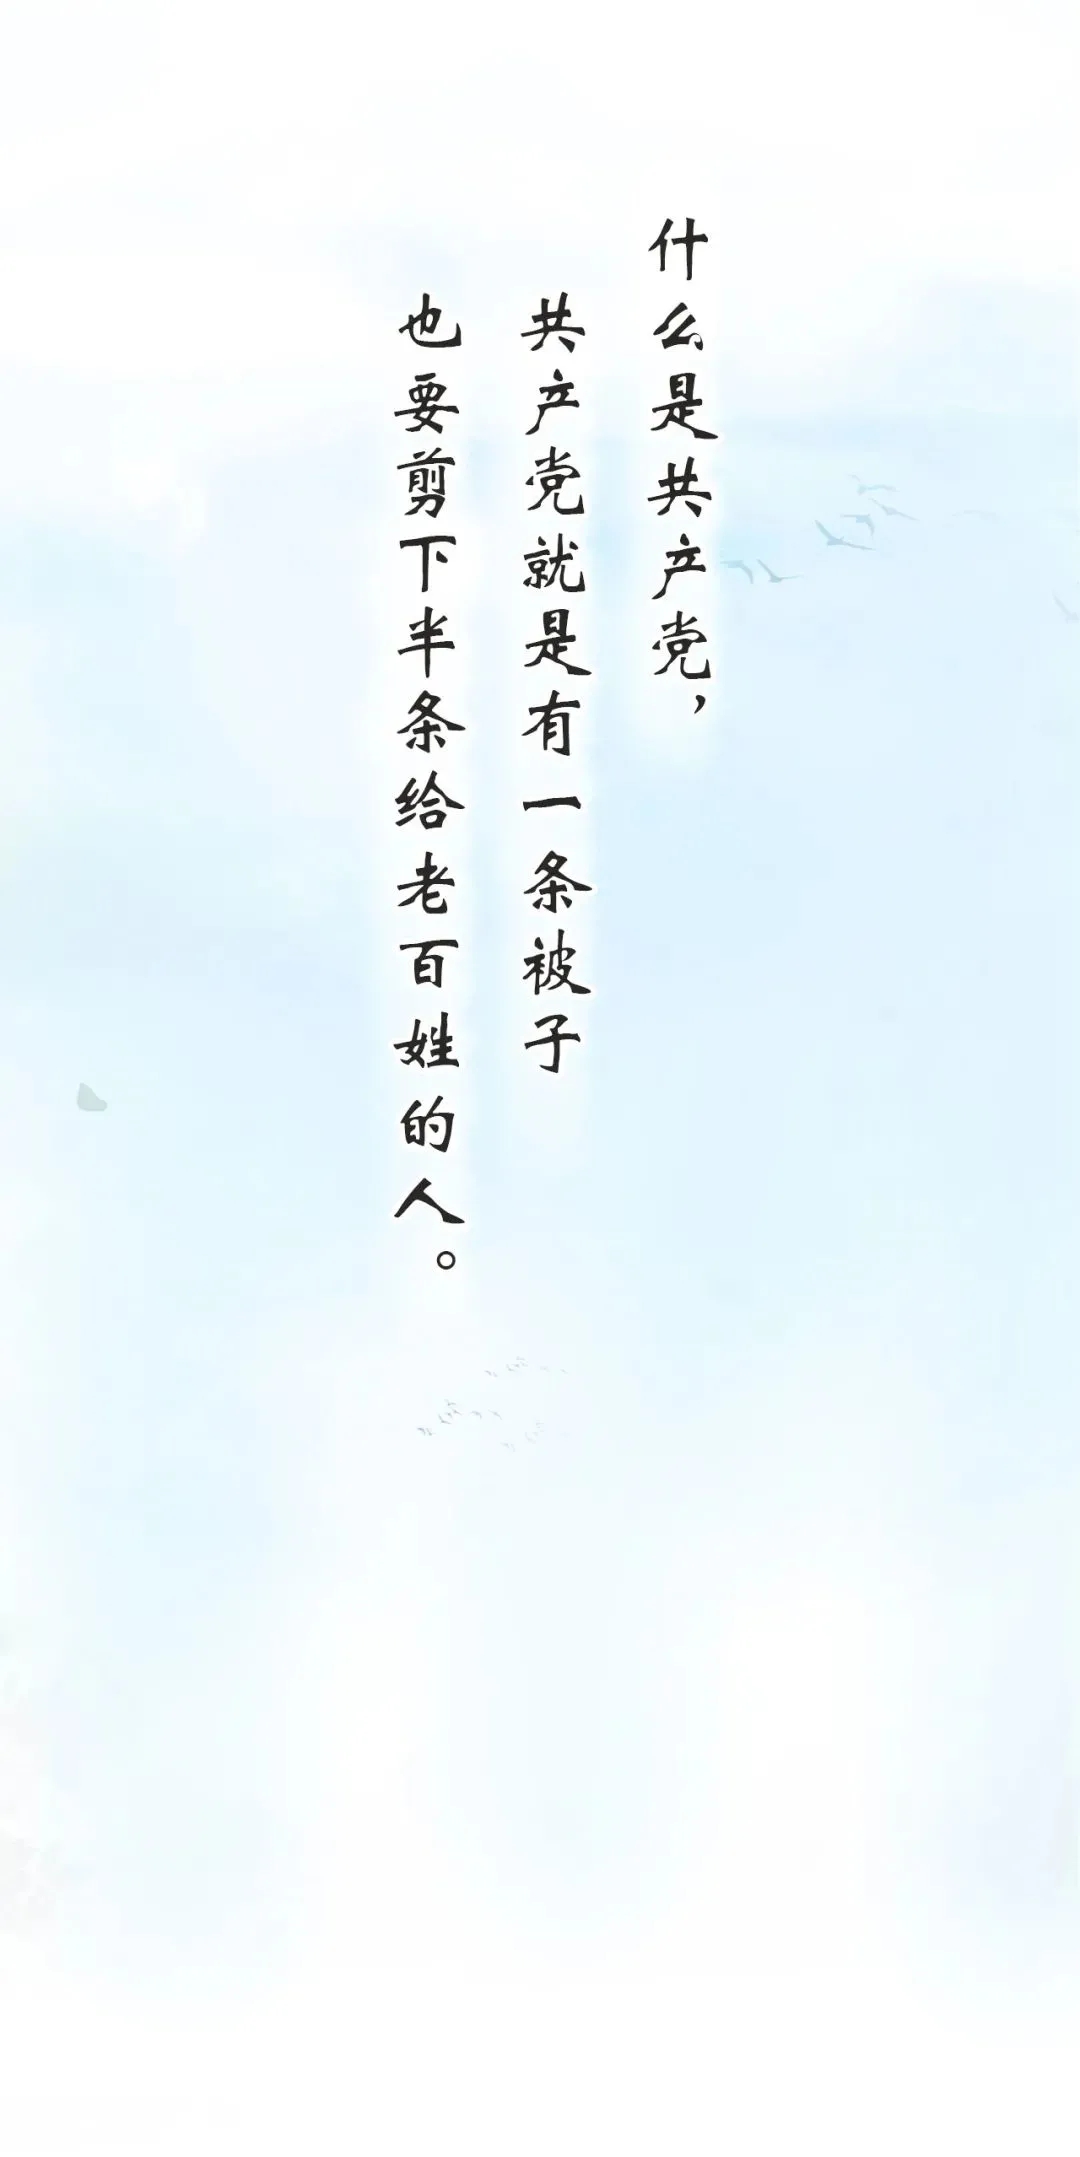 什么是共产党，
共产党就是有一条被子
也要剪下半条给老百姓的人。